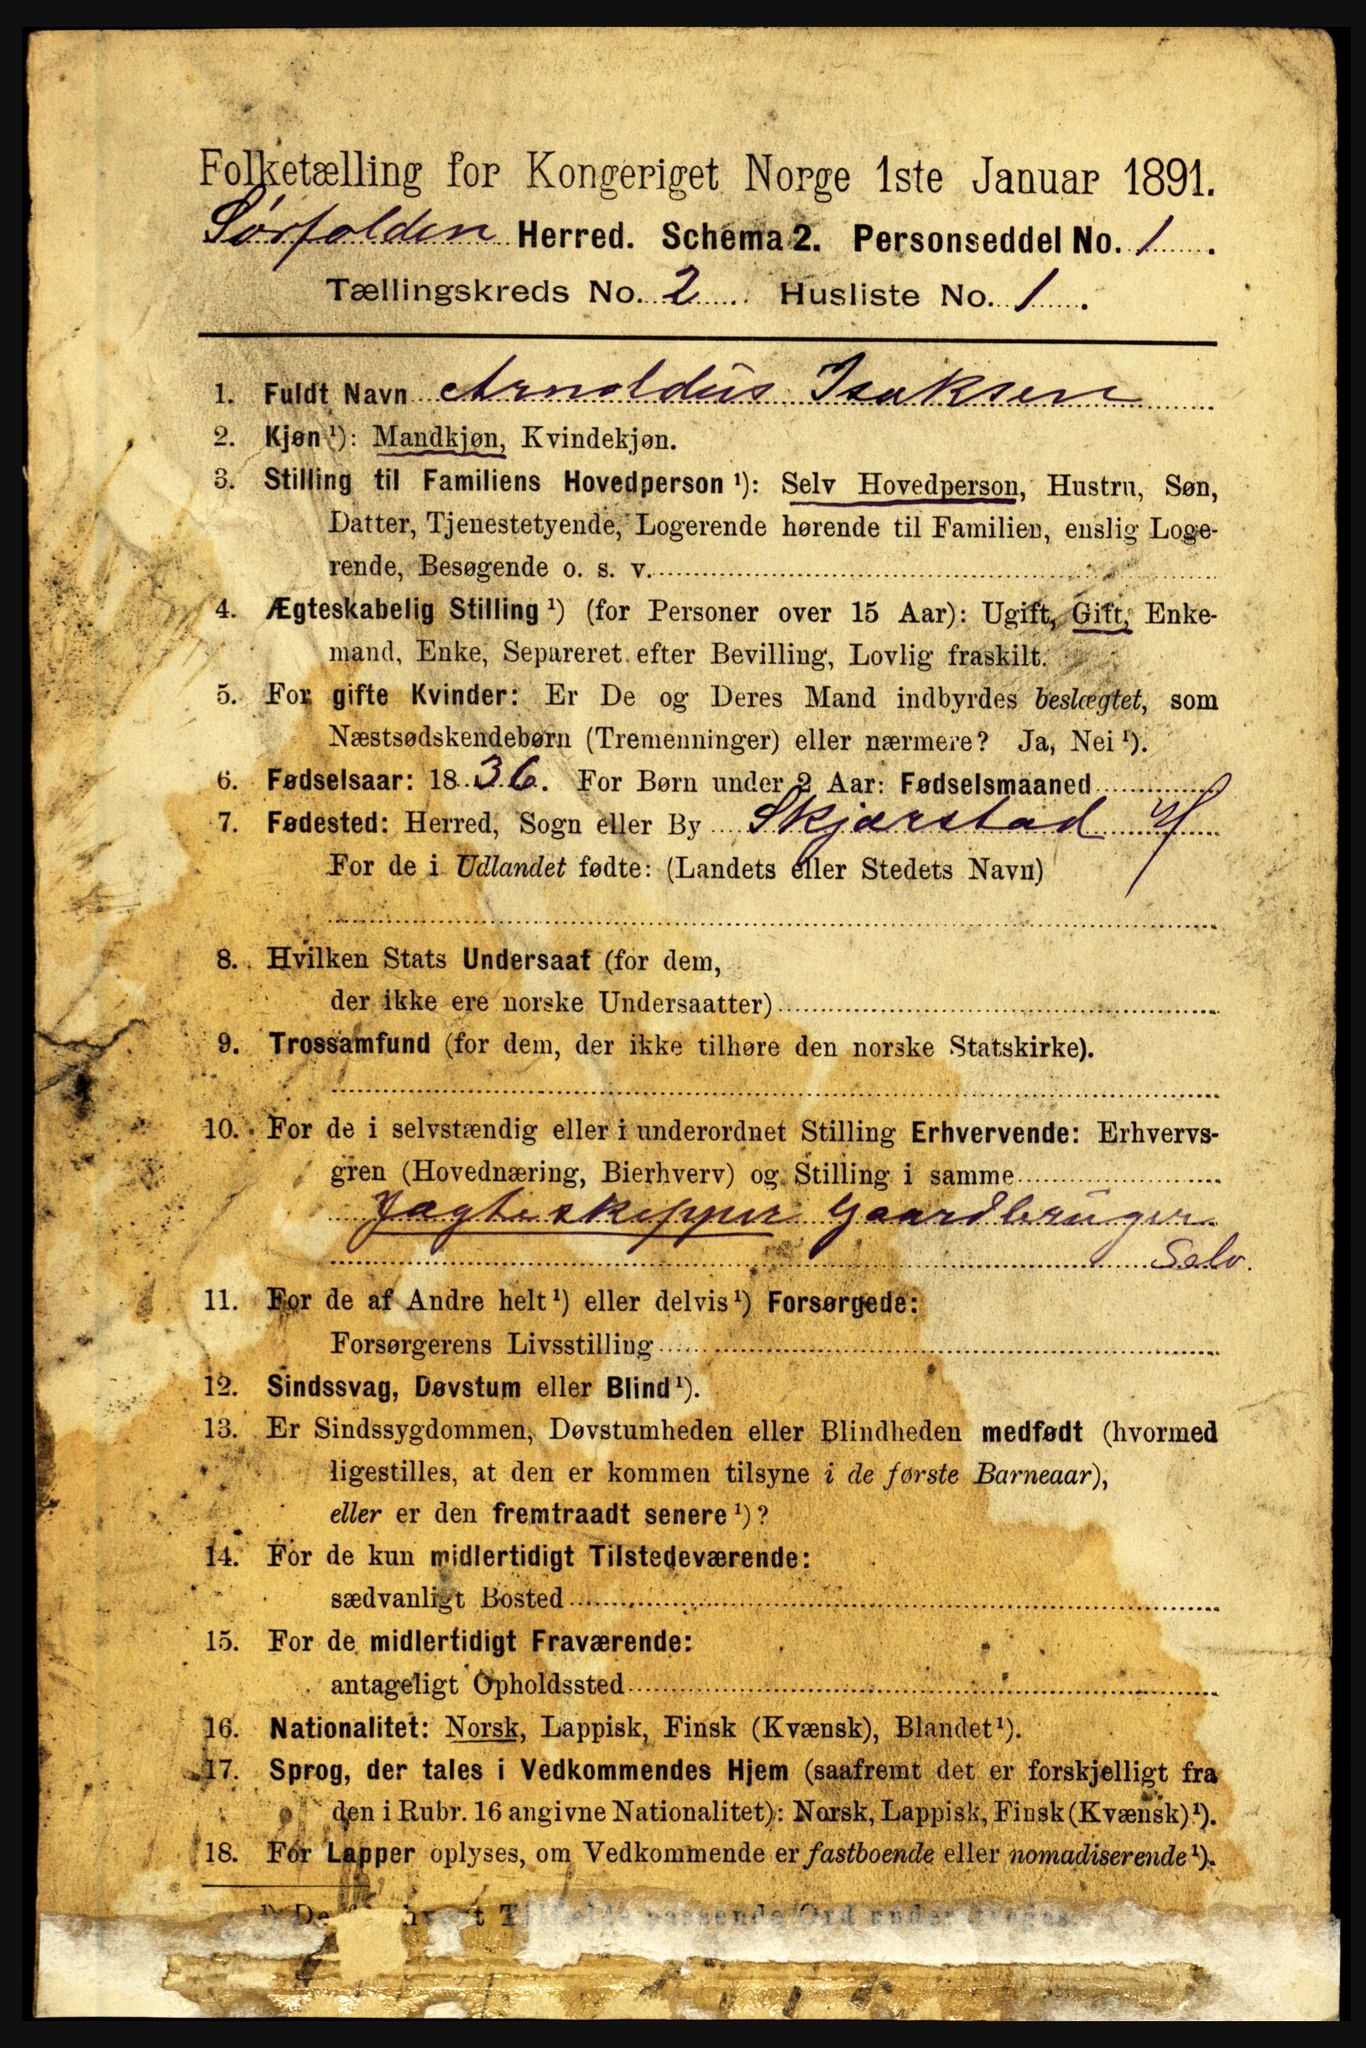 Folketælling for Kongeriget Norge 1ste Januar 1891.
Sørfolden Herred. Schema 2. Personseddel No. 1.
Tællingskreds No. 2. Husliste No. 1.
1. Fuldt Navn Arnoldus Isaksen
2. Kjøn¹): Mandkjøn, Kvindekjøn.
3. Stilling til Familiens Hovedperson¹): Selv Hovedperson, Hustru, Søn,
Datter, Tjenestetyende, Logerende hørende til Familien, enslig Loge-
rende, Besøgende o. s. v.
4. Ægteskabelig Stilling¹) (for Personer over 15 Aar): Ugift, Gift, Enke-
mand, Enke, Separeret efter Bevilling, Lovlig fraskilt.
5. For gifte Kvinder: Er De og Deres Mand indbyrdes beslægtet, som
Næstsødskendebørn (Tremenninger) eller nærmere? Ja, Nei¹).
6. Fødselsaar: 1836. For Børn under 2 Aar: Fødselsmaaned
7. Fødested: Herred, Sogn eller By Skjærstad
For de i Udlandet fødte: (Landets eller Stedets Navn)
8. Hvilken Stats Undersaat (for dem,
der ikke ere norske Undersaatter)
9. Trossamfund (for dem, der ikke tilhøre den norske Statskirke).
10. For de i selvstændig eller i underordnet Stilling Erhvervende: Erhvervs-
gren (Hovednæring, Bierhverv) og Stilling i samme
Jægteskipper Gaardbruger
Selv.
11. For de af Andre helt¹) eller delvis¹) Forsørgede:
Forsørgerens Livsstilling
12. Sindssvag, Døvstum eller Blind¹).
13. Er Sindssygdommen, Døvstumheden eller Blindheden medfødt (hvormed
ligestilles, at den er kommen tilsyne i de første Barneaar),
eller er den fremtraadt senere¹)?
14. For de kun midlertidigt Tilstedeværende:
sædvanligt Bosted
15. For de midlertidigt Fraværende:
antageligt Opholdssted
16. Nationalitet: Norsk, Lappisk, Finsk (Kvænsk), Blandet¹).
17. Sprog, der tales i Vedkommendes Hjem (saafremt det er forskjelligt fra
den i Rubr. 16 angivne Nationalitet): Norsk, Lappisk, Finsk (Kvænsk)¹).
18. For Lapper oplyses, om Vedkommende er fastboende eller nomadiserende¹).
passende Ord under